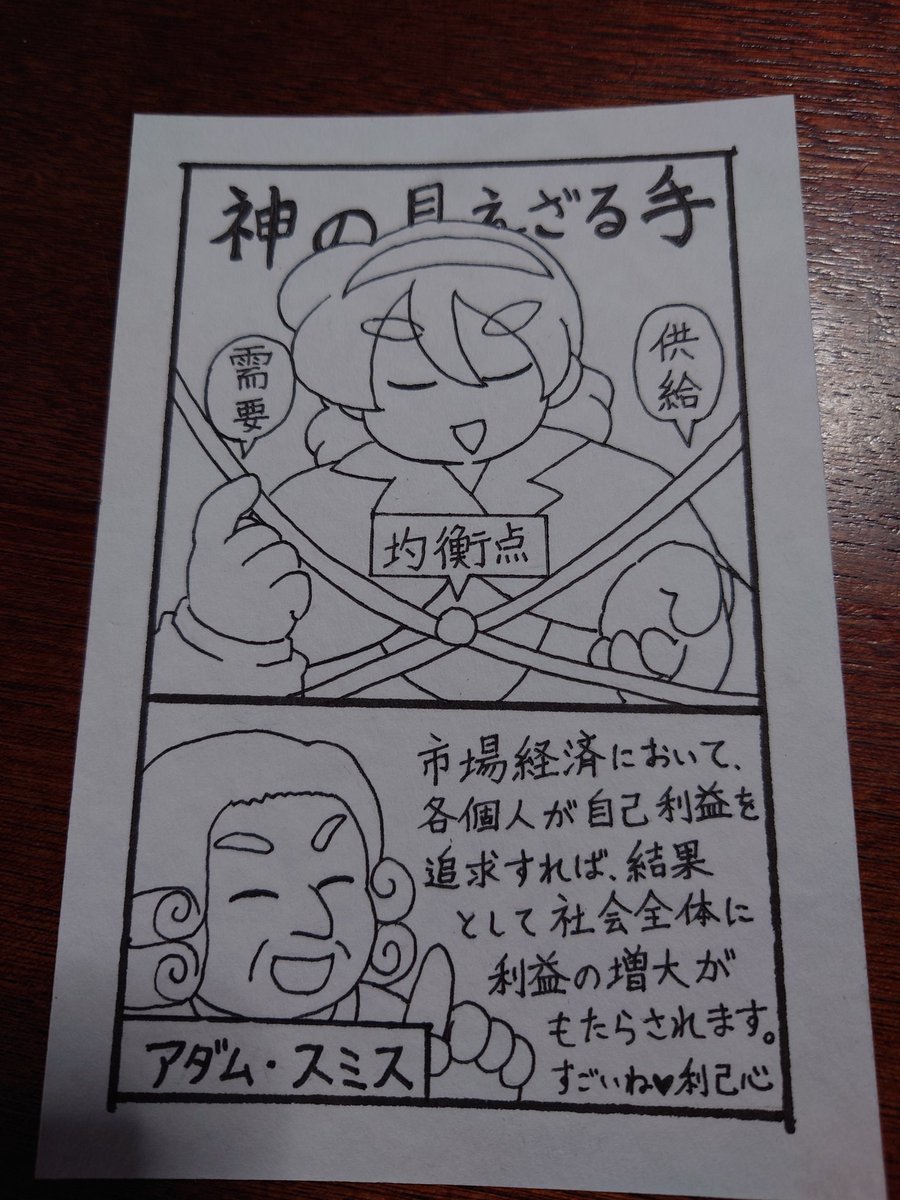 神の見えざる手
需要
供給
均衡点
市場経済において、
各個人が自己利益を
追求すれば、結果
として社会全体に
利益の増大が
もたらされます。
すごいね♥利己心
アダム・スミス